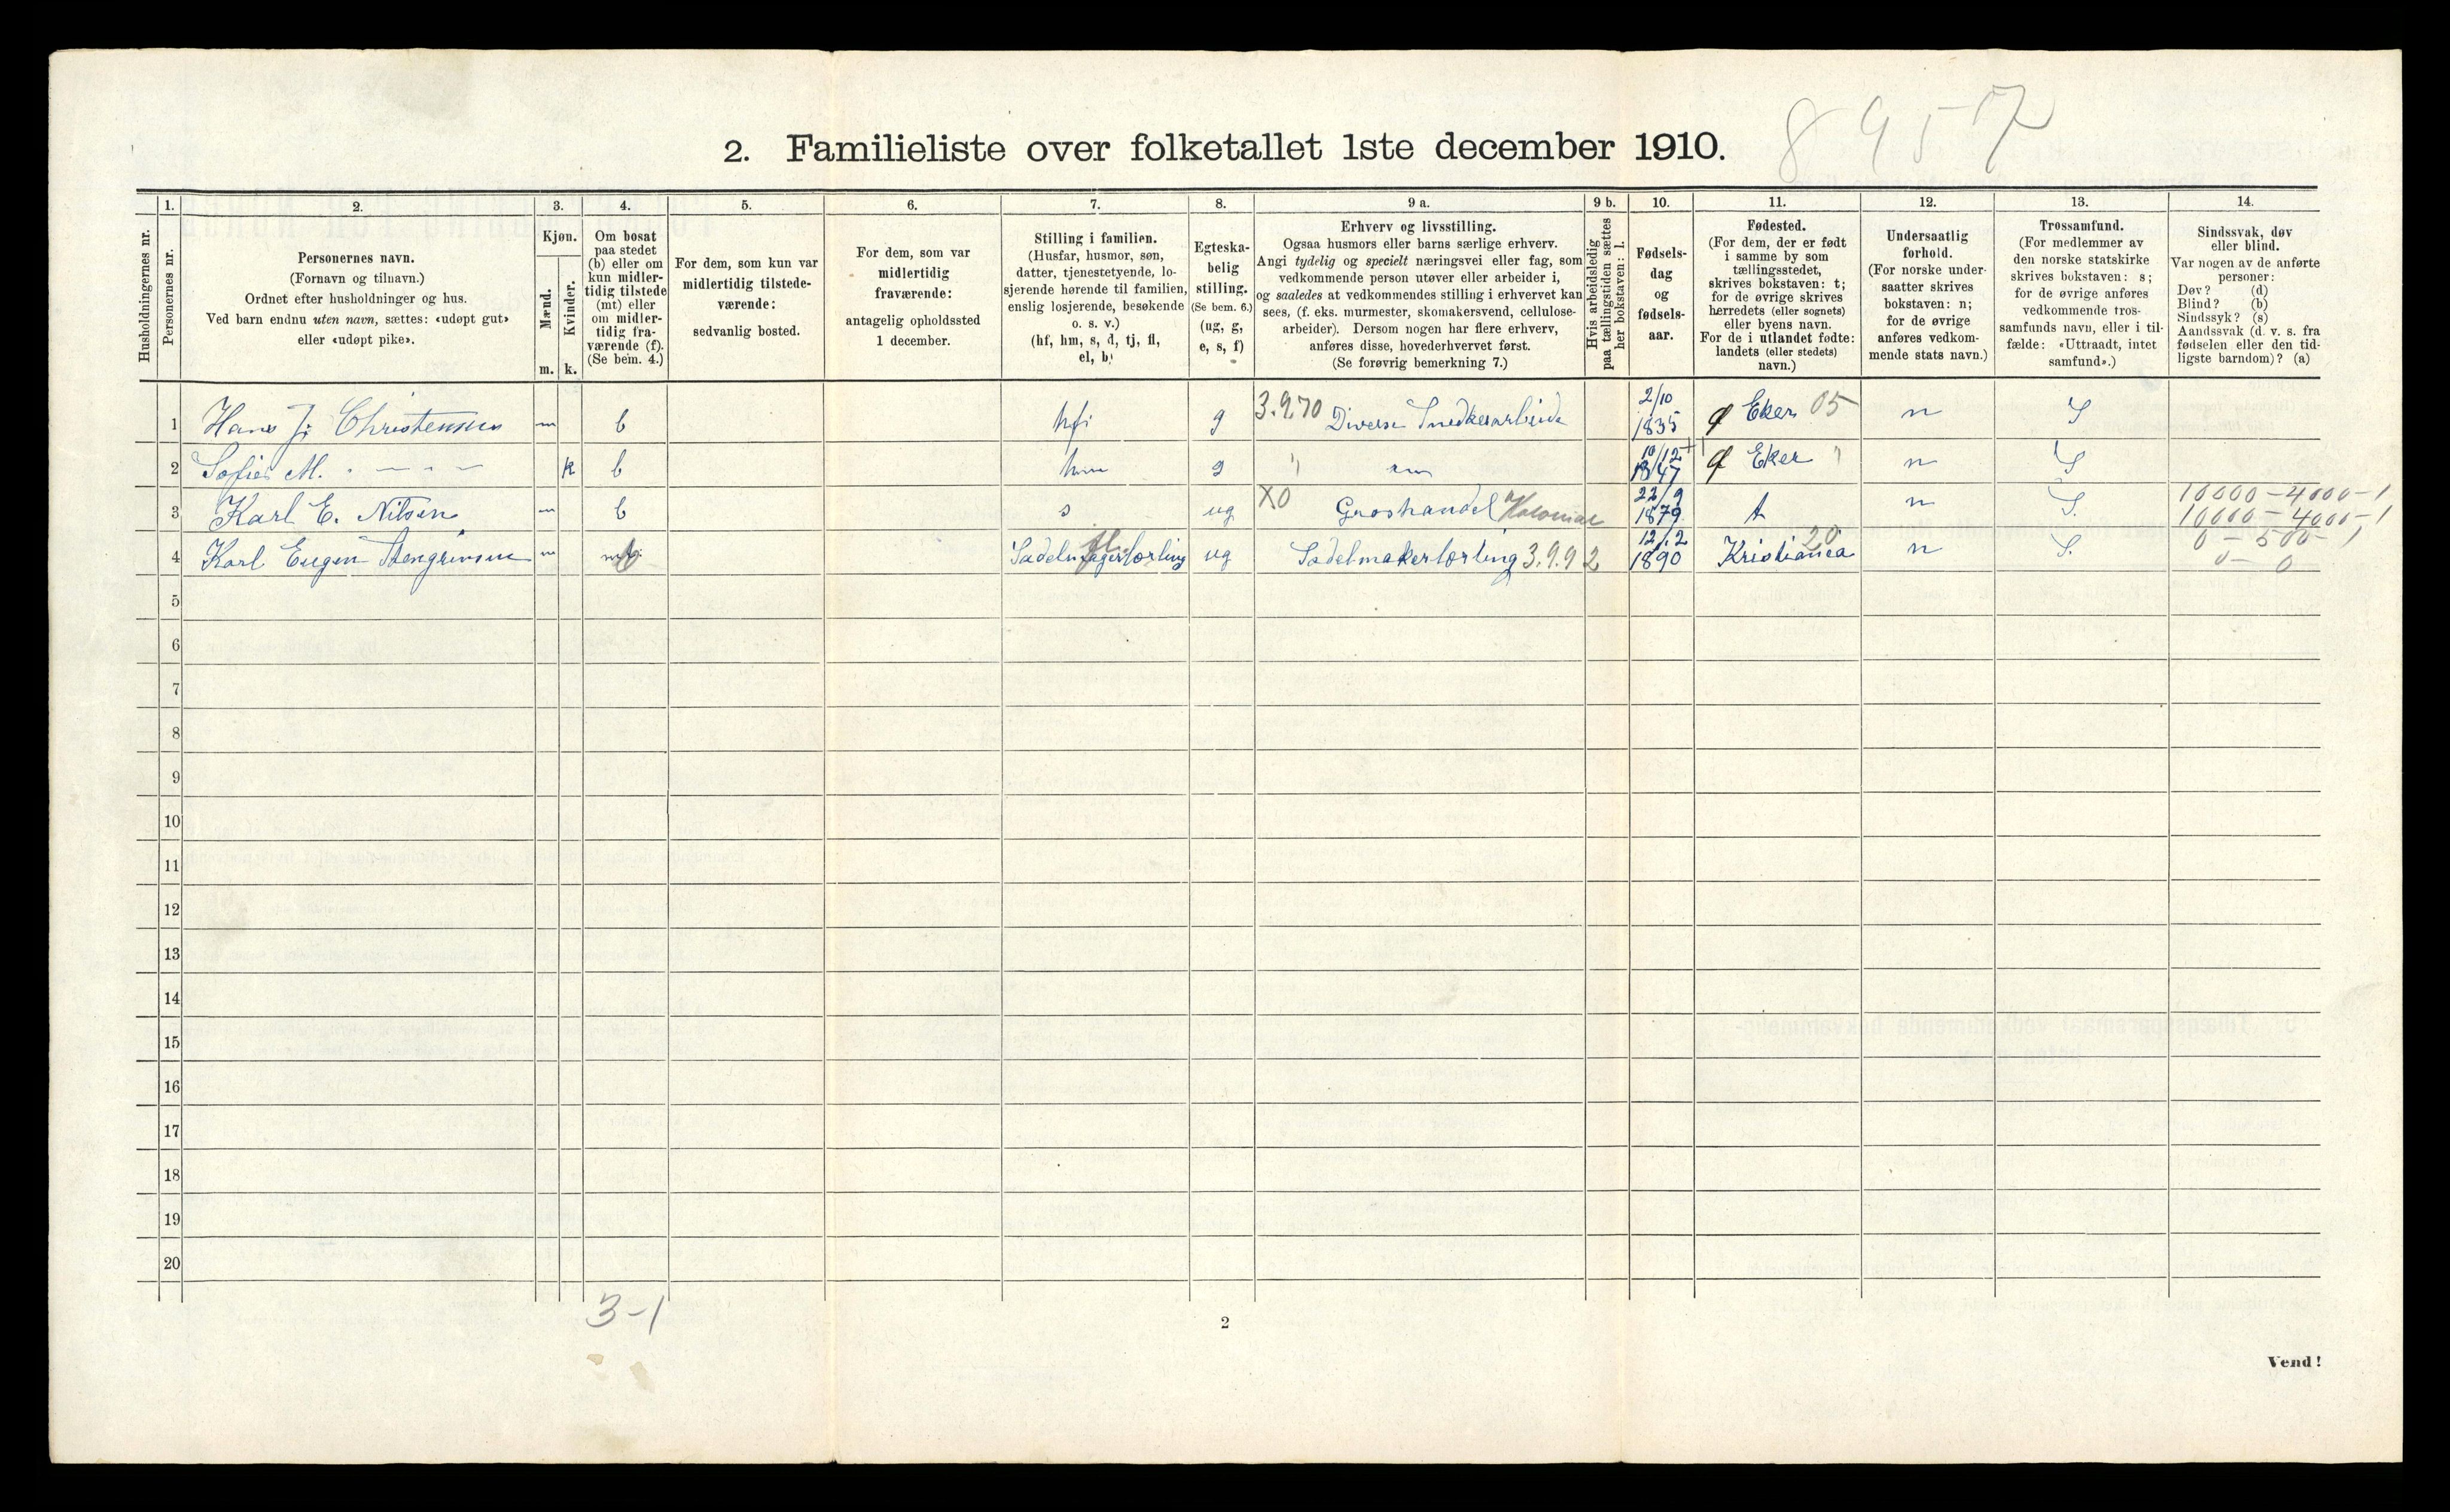 8957
2. Familieliste over folketallet 1ste december 1910.
Husholdningernes nr.
1. Personernes nr.
2. Personernes navn.
(Fornavn og tilnavn.)
Ordnet efter husholdninger og hus.
Ved barn endnu uten navn, sættes: «udøpt gut»
eller «udøpt pike».
3. Kjøn.
Mænd. m.
Kvinder. k.
4. Om bosat
paa stedet
(b) eller om
kun midler-
tidig tilstede
(mt) eller
om midler-
tidig fra-
værende (f).
(Se bem. 4.)
5. For dem, som kun var
midlertidig tilstede-
værende:
sedvanlig bosted.
6. For dem, som var
midlertidig
fraværende:
antagelig opholdssted
1 december.
7. Stilling i familien.
(Husfar, husmor, søn,
datter, tjenestetyende, lo-
sjerende hørende til familien,
enslig losjerende, besøkende
o. s. v.)
(hf, hm, s, d, tj, fl,
el, b)
8. Egteska-
belig
stilling.
(Se bem. 6.)
(ug, g,
e, s, f)
9 a. Erhverv og livsstilling.
Ogsaa husmors eller barns særlige erhverv.
Angi tydelig og specielt næringsvei eller fag, som
vedkommende person utøver eller arbeider i,
og saaledes at vedkommendes stilling i erhvervet kan
sees, (f. eks. murmester, skomakersvend, cellulose-
arbeider). Dersom nogen har flere erhverv,
anføres disse, hovederhvervet først.
(Se forøvrig bemerkning 7.)
9 b. Hvis arbeidsledig
paa tællingstiden sættes
her bokstaven: l.
10. Fødsels-
dag
og
fødsels-
aar.
11. Fødested.
(For dem, der er født
i samme by som
tællingsstedet,
skrives bokstaven: t;
for de øvrige skrives
herredets (eller sognets)
eller byens navn.
For de i utlandet fødte:
landets (eller stedets)
navn.)
12. Undersaatlig
forhold.
(For norske under-
saatter skrives
bokstaven: n;
for de øvrige
anføres vedkom-
mende stats navn.)
13. Trossamfund.
(For medlemmer av
den norske statskirke
skrives bokstaven: s;
for de øvrige anføres
vedkommende tros-
samfunds navn, eller i til-
fælde: «Uttraadt, intet
samfund».)
14. Sindssvak, døv
eller blind.
Var nogen av de anførte
personer:
Døv? (d)
Blind? (b)
Sindssyk? (s)
Aandssvak (d. v. s. fra
fødselen eller den tid-
ligste barndom)? (a)
1 Hans J. Christensen m b hf g 3.9.70 Diverse Snedkerarbeide 2/10 1835 Ø Eker 05 n S
2 Sofie M. - " - k b hm g " 10/12 1847 Ø Eker " n S
3 Karl E. Nilsen m b s ug X0 Groshandel Kolonial 22/9 1879 t n S. 10000-4000-1
10000-4000-1
4 Karl Eugen m b Sadelmagerlærling fl. ug Sadelmakerlærling 3.9.92 12/12 1890 Kristiania 20 n S. 0-500-1
0-0
5
6
7
8
9
10
11
12
13
14
15
16
17
18
19
20
3-1
2
Vend!